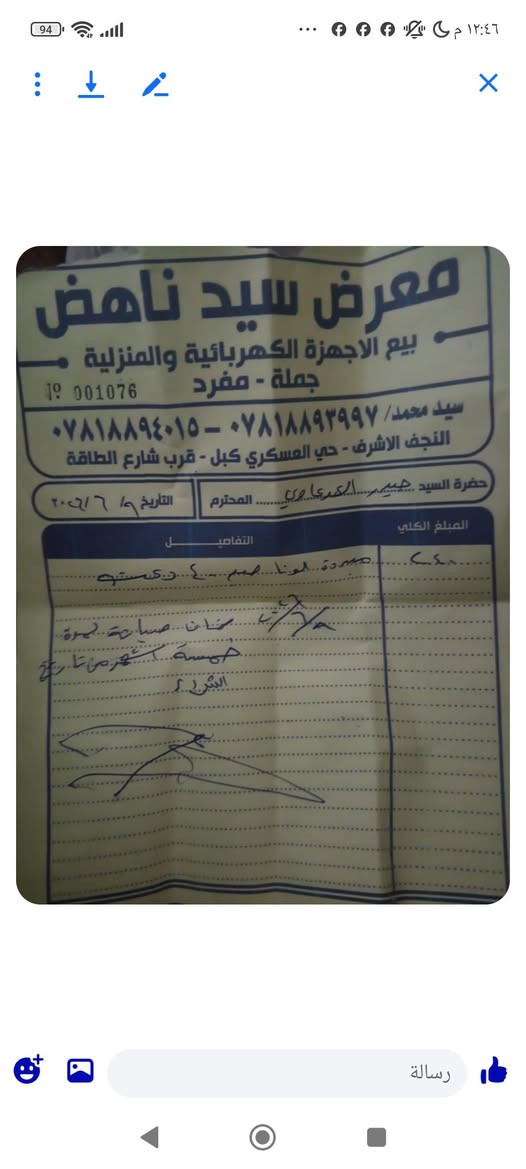 94
١٢:٤٦ م
معرض سيد ناهض
بيع الاجهزة الكهربائية والمنزلية
جملة - مفرد
Nº 001076
سيد محمد/ ٠٧٨١٨٨٩٣٩٩٧ - ٠٧٨١٨٨٩٤٠١٥
النجف الاشرف - حي العسكري كبل - قرب شارع الطاقة
حضرة السيد حيدر المحترم
التاريخ ٩/ ٦ /٢٠٢٦
المبلغ الكلي
التفاصيــــل
٢٤٠
مبردة لونا حجم ٤٠
ضمان صيانة لمدة
خمسة اشهر من تاريخ
الشراء
رسالة